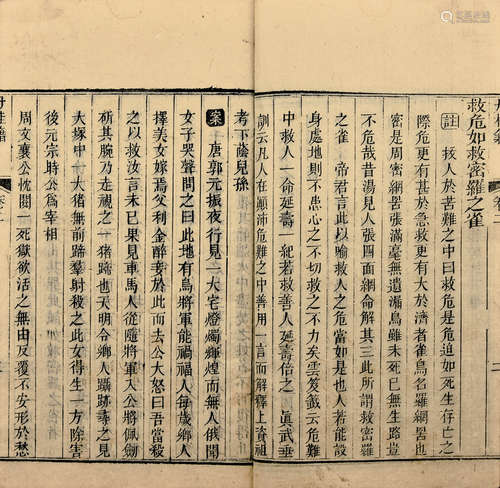 救危如救密羅之雀
註 救人於苦難之中曰救危是危迫如死生存亡之
際危更有甚於急救更有大於濟者雀鳥名羅網罟也
密是周密網罟張滿毫無遺漏鳥雖未死已無生路豈
不危哉昔湯見人張四面網命解其三此所謂救密羅
之雀 帝君言此以喻救人之危當如是也人若能設
身處地則不患心之不切救之不力矣雲笈籤云危難
中救人一命延壽一紀若救善人延壽倍之 眞武垂
訓云凡人在顛沛危難之中善用一言而解釋上資祖
考下蔭兒孫
案 唐郭元振夜行見一大宅燈燭輝煌而無人俄聞
女子哭聲問之曰此地有烏將軍能禍福人每歲鄉人
擇美女嫁焉父利金醉妾於此而去公大怒曰吾當殺
之以救汝言未已果見車馬人從隨將軍入公將佩劍
斫其腕乃走視之一猪蹄也天明令鄉人躡跡尋之見
大塚中一大猪無前蹄羣射殺之此女得生一方除害
後元宗時公爲宰相
周文襄公忱閱一死獄欲活之無由反覆不安形於愁
丹桂籍
卷二